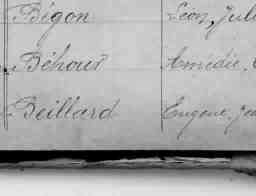 Bégon Léon, Jule
Béhour Amédée,
Beillard Eugène, Jea